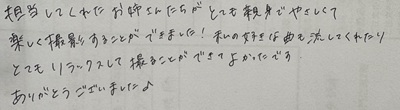 担当してくれたお姉さんたちがとても親身でやさしくて
楽しく撮影することができました！私の好きな曲も流してくれたり
とてもリラックスして撮ることができてよかったです
ありがとうございました♪